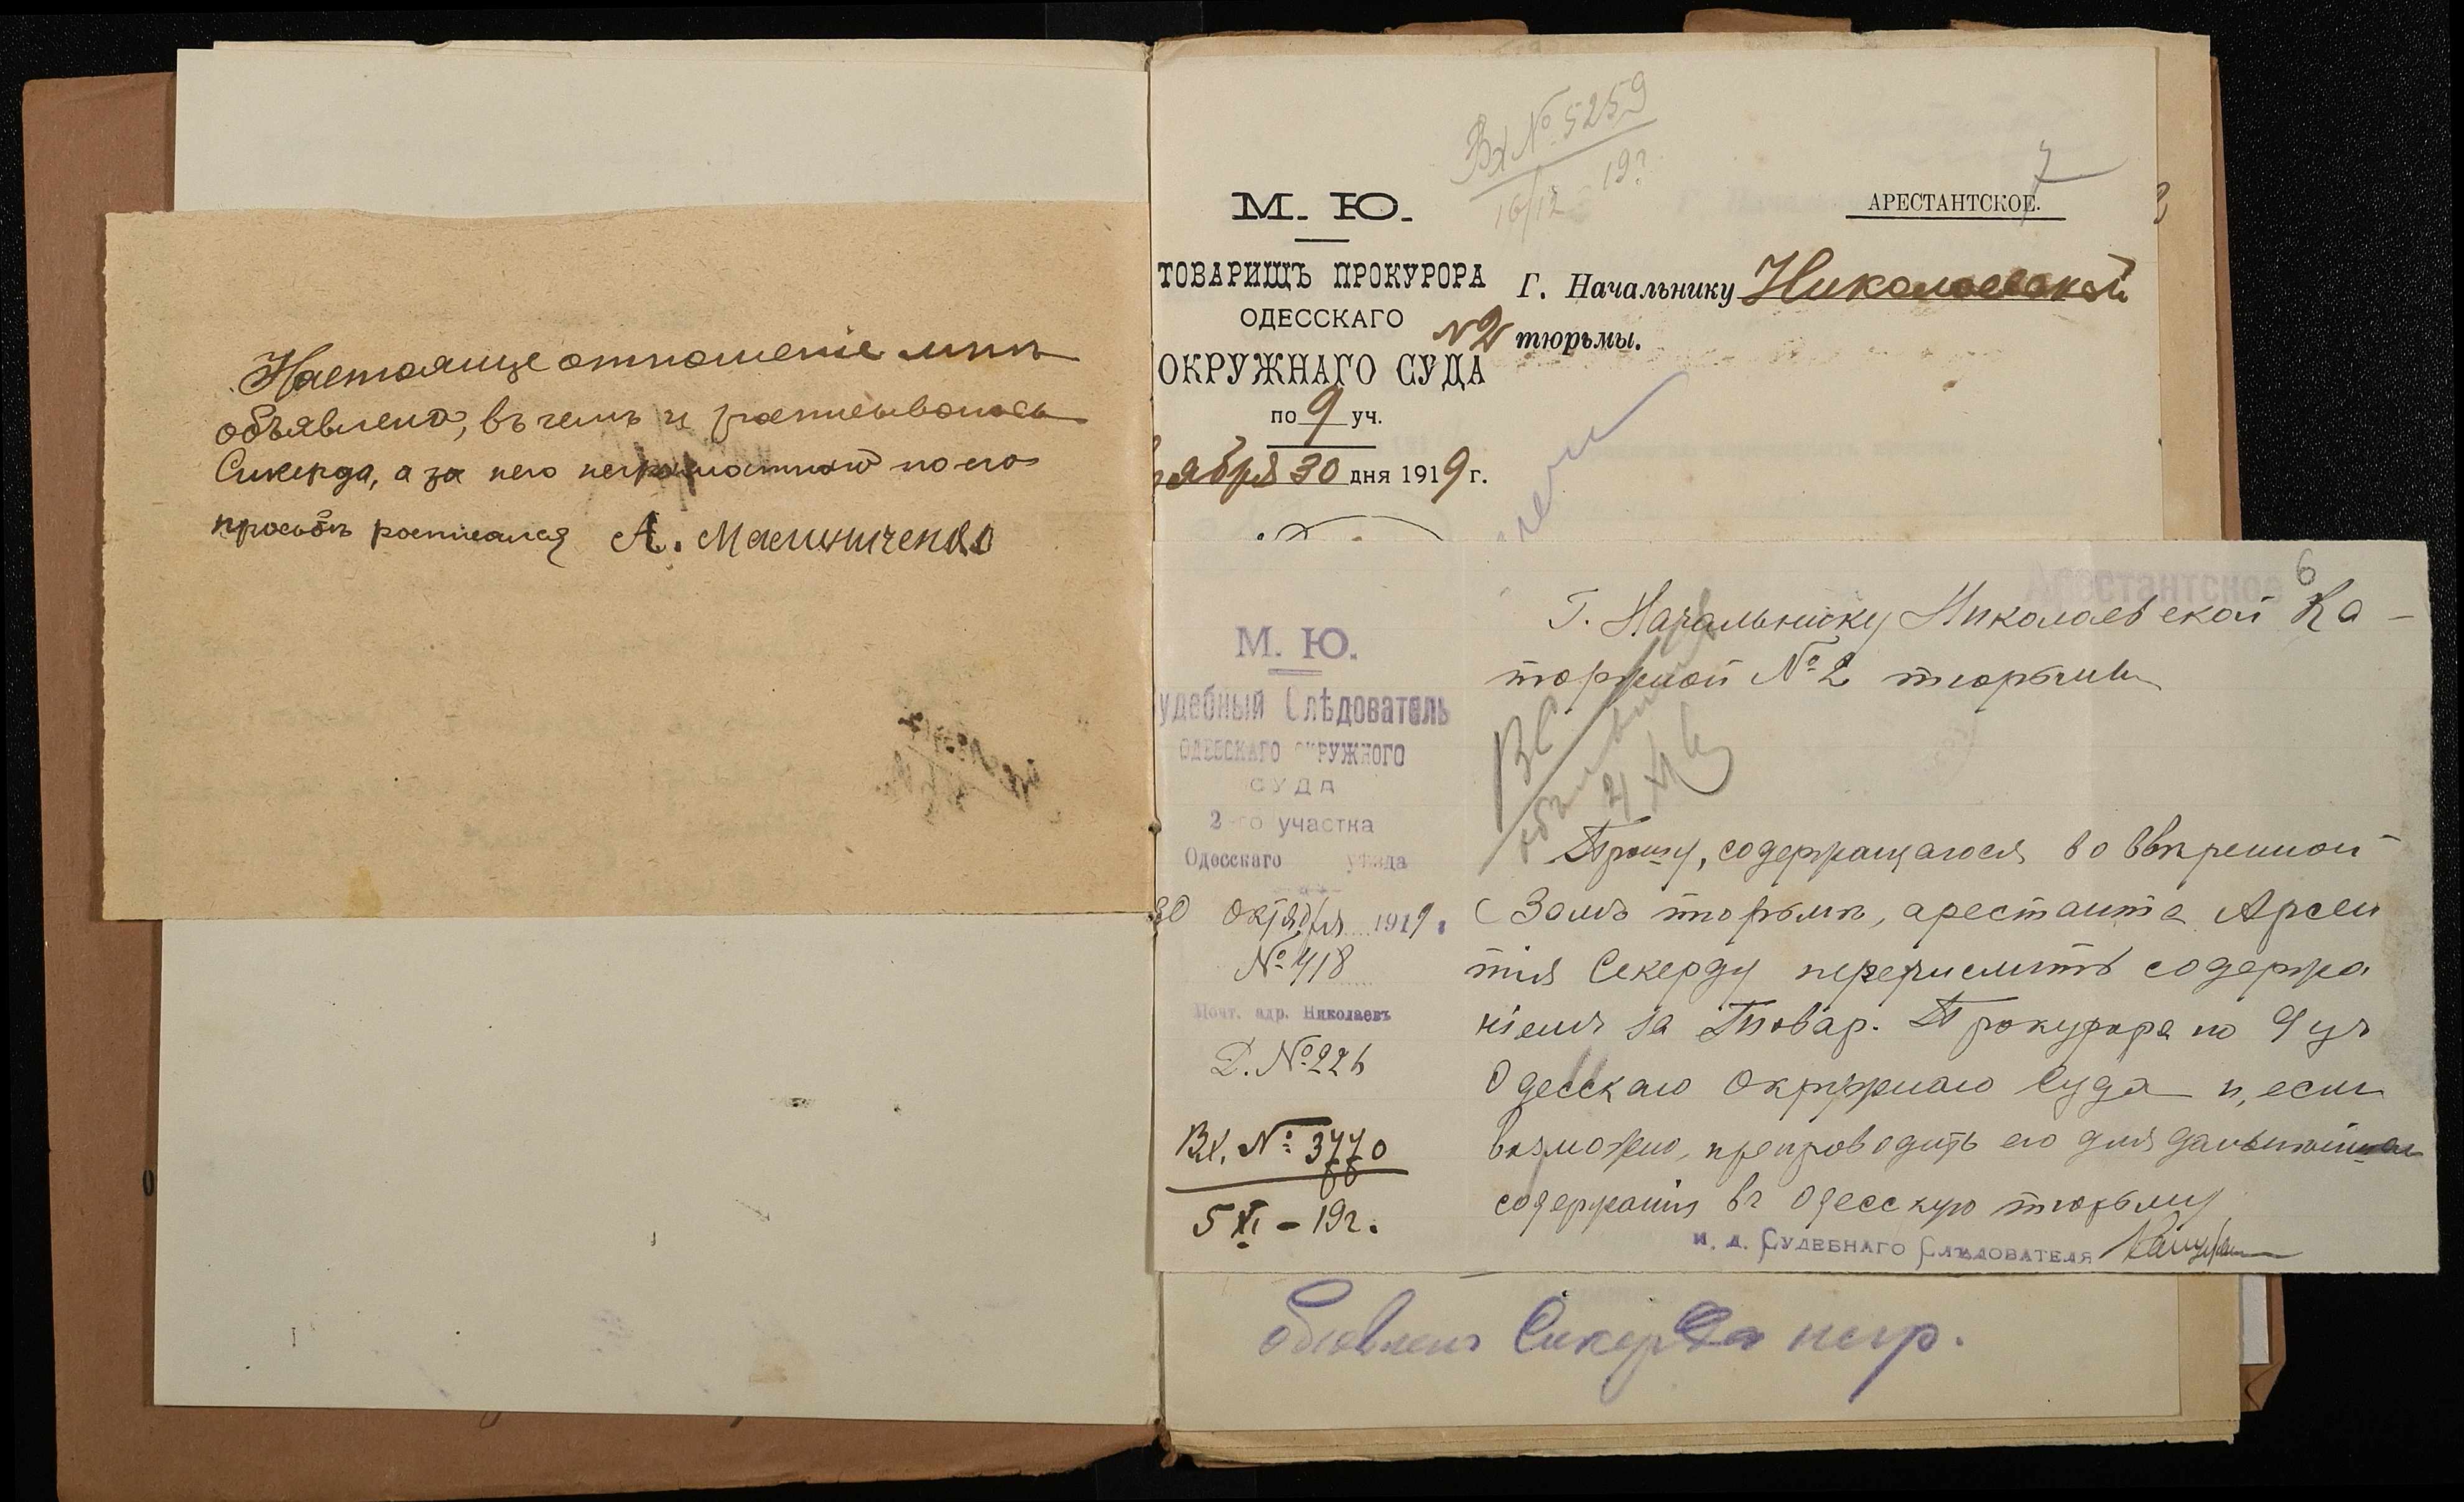 Настояще отношеніе мнѣ
объявлено, въ чемъ и росписываюсь
Сикерда, а за него неграмотного по его
просьбѣ росписался А. Малиниченко
Вх № 5259
16/12 19г.
7
АРЕСТАНТСКОЕ.
М. Ю.
ТОВАРИЩЪ ПРОКУРОРА
ОДЕССКАГО
ОКРУЖНАГО СУДА
по 9 уч.
ября 30 дня 1919 г.
Г. Начальнику Николаевской
№2 тюрьмы.
6
Арестантское
М. Ю.
удебный Слѣдователь
ОДЕССКАГО ОКРУЖНОГО
СУДА
2-го участка
Одесскаго уѣзда
30 октября 1919.
№ 418
Почт. адр. Николаевъ
Д. № 226
Вх. № 3770
5 XI - 19г.
Г. Начальнику Николаевской Ка-
торжной № 2 тюрьмы
Прошу, содержащагося во ввѣренной
Вамъ тюрьмѣ, арестанта Арсен
тія Секерду перечислить содержа
ніемъ за Товар. Прокурора по 9 уч
Одесскаго Окружнаго Суда и, если
возможно, препроводить его для дальнѣйшаго
содержанія въ Одесскую тюрьму
И. д. Судебнаго Слѣдователя
Объявлено Сикерда негр.